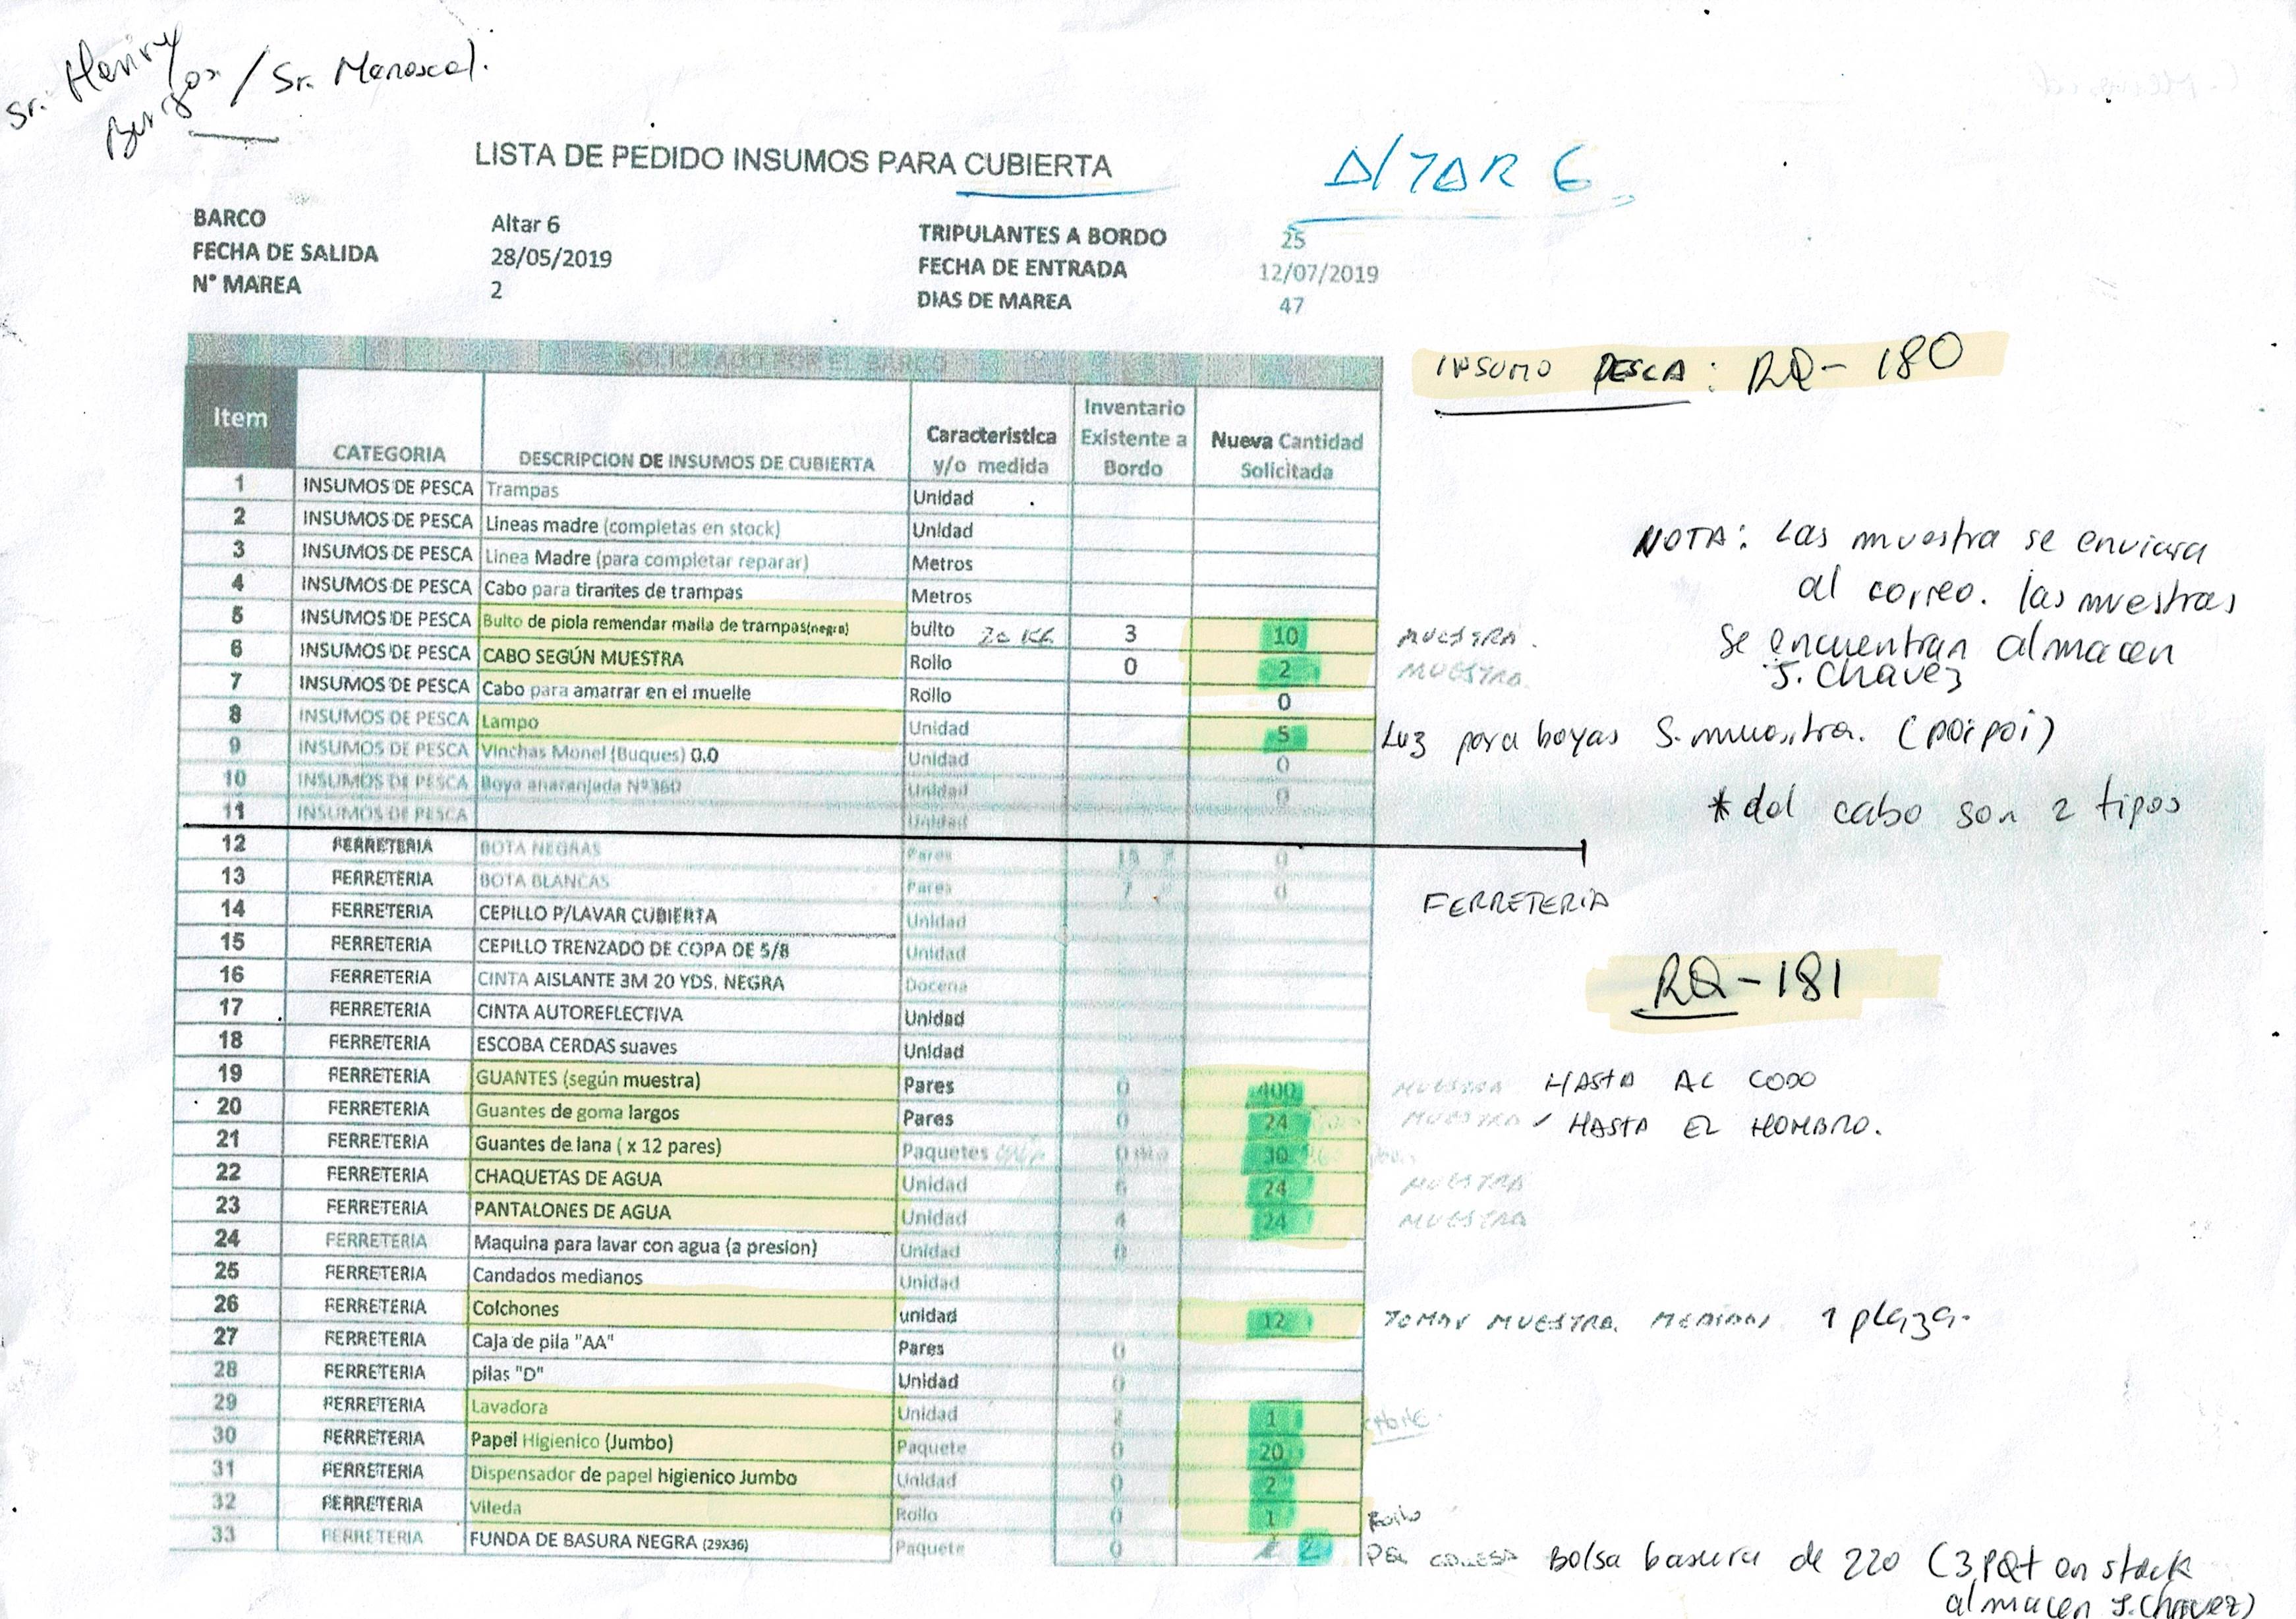 Sr. Henry
Burgos / Sr. Manoscal.
LISTA DE PEDIDO INSUMOS PARA CUBIERTA
ALTAR 6
BARCO Altar 6 TRIPULANTES A BORDO 25
FECHA DE SALIDA 28/05/2019 FECHA DE ENTRADA 12/07/2019
N° MAREA 2 DIAS DE MAREA 47
SOLICITADO POR EL BARCO
INSUMO PESCA: RQ- 180
Item CATEGORIA DESCRIPCION DE INSUMOS DE CUBIERTA Caracteristica y/o medida Inventario Existente a Bordo Nueva Cantidad Solicitada
1 INSUMOS DE PESCA Trampas Unidad
2 INSUMOS DE PESCA Lineas madre (completas en stock) Unidad
3 INSUMOS DE PESCA Linea Madre (para completar reparar) Metros
4 INSUMOS DE PESCA Cabo para tirantes de trampas Metros
5 INSUMOS DE PESCA Bulto de piola remendar malla de trampas(negra) bulto 20 KG 3 10 MUESTRA.
6 INSUMOS DE PESCA CABO SEGÚN MUESTRA Rollo 0 2 MUESTRA.
7 INSUMOS DE PESCA Cabo para amarrar en el muelle Rollo 0
8 INSUMOS DE PESCA Lampo Unidad 5 Luz para boyas S.muestra. (poipoi)
9 INSUMOS DE PESCA Vinchas Monel (Buques) 0.0 Unidad 0
10 INSUMOS DE PESCA Boya anaranjada Nº360 Unidad 0
11 INSUMOS DE PESCA Unidad
NOTA: Las muestra se enviara
al correo. las muestras
se encuentran almacen
J. Chavez
*del cabo son 2 tipos
12 FERRETERIA BOTA NEGRAS Pares 0
13 FERRETERIA BOTA BLANCAS Pares 0
FERRETERIA
14 FERRETERIA CEPILLO P/LAVAR CUBIERTA Unidad
15 FERRETERIA CEPILLO TRENZADO DE COPA DE 5/8 Unidad
16 FERRETERIA CINTA AISLANTE 3M 20 YDS. NEGRA Docena
RQ-181
17 FERRETERIA CINTA AUTOREFLECTIVA Unidad
18 FERRETERIA ESCOBA CERDAS suaves Unidad
19 FERRETERIA GUANTES (según muestra) Pares 0 400 MUESTRA HASTA AL CODO
20 FERRETERIA Guantes de goma largos Pares 0 24 MUESTRA / HASTA EL HOMBRO.
21 FERRETERIA Guantes de lana ( x 12 pares) Paquetes 0 30
22 FERRETERIA CHAQUETAS DE AGUA Unidad 6 24 MUESTRA
23 FERRETERIA PANTALONES DE AGUA Unidad 4 24 MUESTRA
24 FERRETERIA Maquina para lavar con agua (a presion) Unidad 0
25 FERRETERIA Candados medianos Unidad
26 FERRETERIA Colchones unidad 12 TOMAR MUESTRA. 1 plaza.
27 FERRETERIA Caja de pila "AA" Pares 0
28 FERRETERIA pilas "D" Unidad 0
29 FERRETERIA Lavadora Unidad 1
30 FERRETERIA Papel Higienico (Jumbo) Paquete 0 20
31 FERRETERIA Dispensador de papel higienico Jumbo Unidad 0 2
32 FERRETERIA Vileda Rollo 0 1 Rollo
33 FERRETERIA FUNDA DE BASURA NEGRA (29X36) Paquete 0 2 Bolsa basura de 220 (3 PQt en stock
almacen J. Chavez)